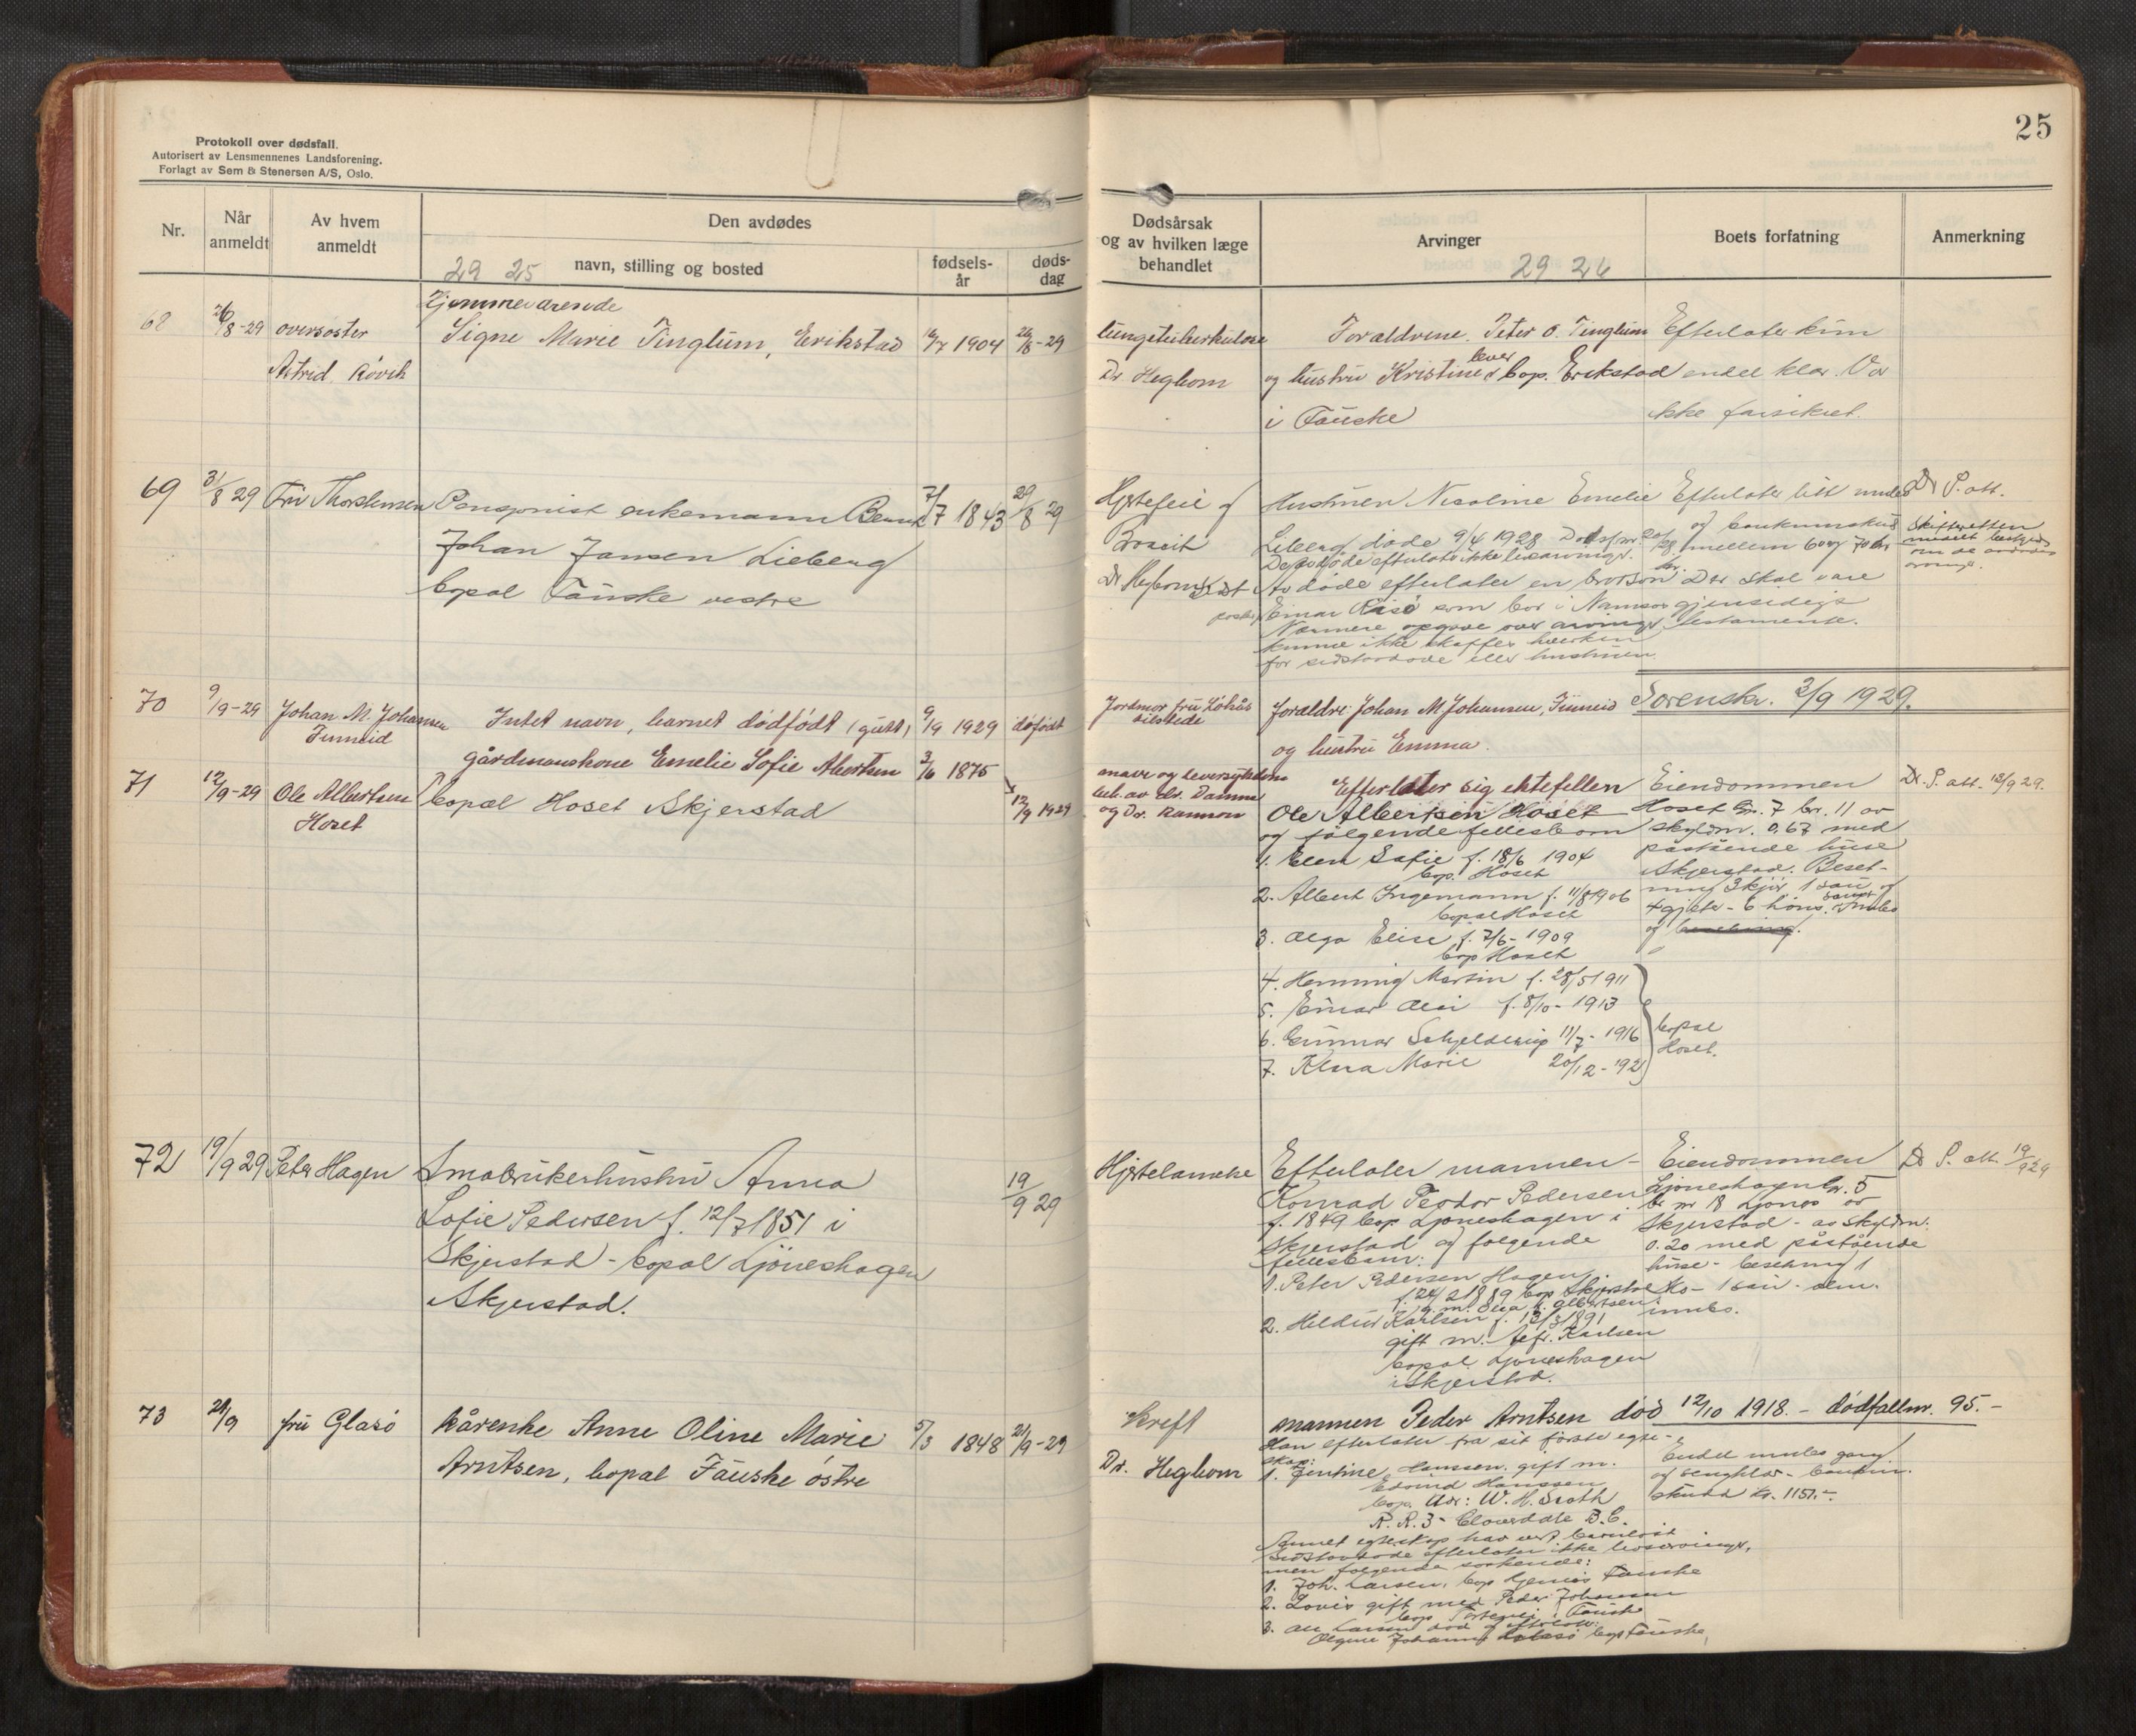 25
Protokoll over dødsfall.
Autorisert av Lensmennenes Landsforening.
Forlagt av Sem & Stenersen A/S, Oslo.
Nr.
Når anmeldt
Av hvem anmeldt
Den avdødes
29 25 navn, stilling og bosted
fødsels-år
døds-dag
Dødsårsak og av hvilken læge behandlet
Arvinger
29 26
Boets forfatning
Anmerkning
Hjemmeværende
68 26/8-29 oversøster Signe Marie Tinglum, Erikstad 16/7 1904 26/8-29
Astrid Røvik
lungetuberkulose
Dr Heghom
Forældrene Peter O. Tinglum
og hustru Kristine bever bop. Erikstad
i Fauske
Efterlater kun
endel klær. Var
ikke forsikret.
69 31/8 29 Fru Thorstensen Pensjonist enkemann Bernt 7/7 1843 29/8 29
Johan Jansen Lieberg
bopæl Fauske vestre
Hjertefeil og
Dr Heghom
Hustruen Nicoline Emelie
Lieberg døde 9/4 1928
Avdøde efterlater en brorson
Einar som bor i Namsos
Nærmere opgave over arvinger
kunne ikke skaffes hverken
for sidstavdøde eller hustruen
Efterlater litt innbo
mellem 60 og 70 kr
Der skal være
gjensidigt
testamente.
Dr S. att.
Skifteretten
meddelt beskjed
om de avdødes
Sorenskr. 2/9 1929.
70 9/9-29 Johan M. Johansen Intet navn, barnet dödfödt (gutt) 9/9 1929 döfödt
Finneid
Jordmor fru
tilstede
forældre: Johan M Johansen, Finneid
og hustru Emma.
71 12/9-29 Ole Albertsen gårdmannskone Emelie Sofie Albertsen 3/6 1875
Hoset bopæl Hoset Skjerstad 12/9 1929
mave og leversykdom
beh. av dr. Damm
og Dr.
Efterlater sig ektefellen
Ole Albertsen Hoset
og følgende fellesbarn
1. Ellen Sofie f. 18/6 1904
bop. Hoset
2. Albert Ingemann f. 11/8 1906
bopæl Hoset
3. Olga Elise f. 7/6-1909
bop Hoset
4. Henning Martin f. 28/5 1911
5. Einar f. 8/10-1913
6. Gunnar Schjelderup 11/7-1916
7. Klara Marie 20/12-1921
bopæl
Hoset.
Eiendommen
Hoset Gr. 7 br. 11 av
skyldm. 0,67 med
påstående huse
i Skjerstad. Beset-
ning 3 kjør 1 sau og
4 gjeter - 6 høns. Innbo
og
Dr. S. att. 13/9 29.
72 19/9 29 Peter Hagen Småbrukerhustru Anna
Sofie Pedersen f. 12/7 1851 i 19/9 29
Skjerstad - bopæl Ljöneshagen
i Skjerstad.
Hjertelamelse
Efterlater mannen -
Konrad Peder Pedersen
f. 1849 bop. Ljöneshagen i
Skjerstad og følgende
fellesbarn:
1. Peter Pedersen Hagen
2. Hildur Karlsen f. 13/3 1891
gift m. Karlsen
bopæl Ljöneshagen
i Skjerstad.
Eiendommen
Ljöneshagen Gr. 5
br nr 18 Ljønes av
Skjerstad - av skyldm.
0.20 med påstående
huse - besetning 1
Ko - 1 sau - alm.
innbo.
Dr S. att. 19/9 29
73 21/9 fru Glasö kårenke Anne Oline Marie 5/3 1848 21/9-29
Arntsen, bopæl Fauske östre
Kreft
Dr. Heghom
mannen Peder Arntsen död 12/10 1918. - dödfallnr. 95. -
Han efterlater fra sit første egte-
skap:
1. Jentine Hanssen. gift m.
Edvind Hanssen
bop. Adr: W. H. Sroth
R. R. 3 - Cloverdale B.C.
Samnet egteskap har vert barnløst
Sidstavdøde efterlater ikke livsarvinger,
men følgende søskende:
1. Joh. Larsen, bop Fauske
2. Lovis gift med Peder Johansen
3. Larsen død og efterlater:
Johanny Glasø bop Fauske
Endel innbo gang
og sengklær -
skudd Kr. 1151.-